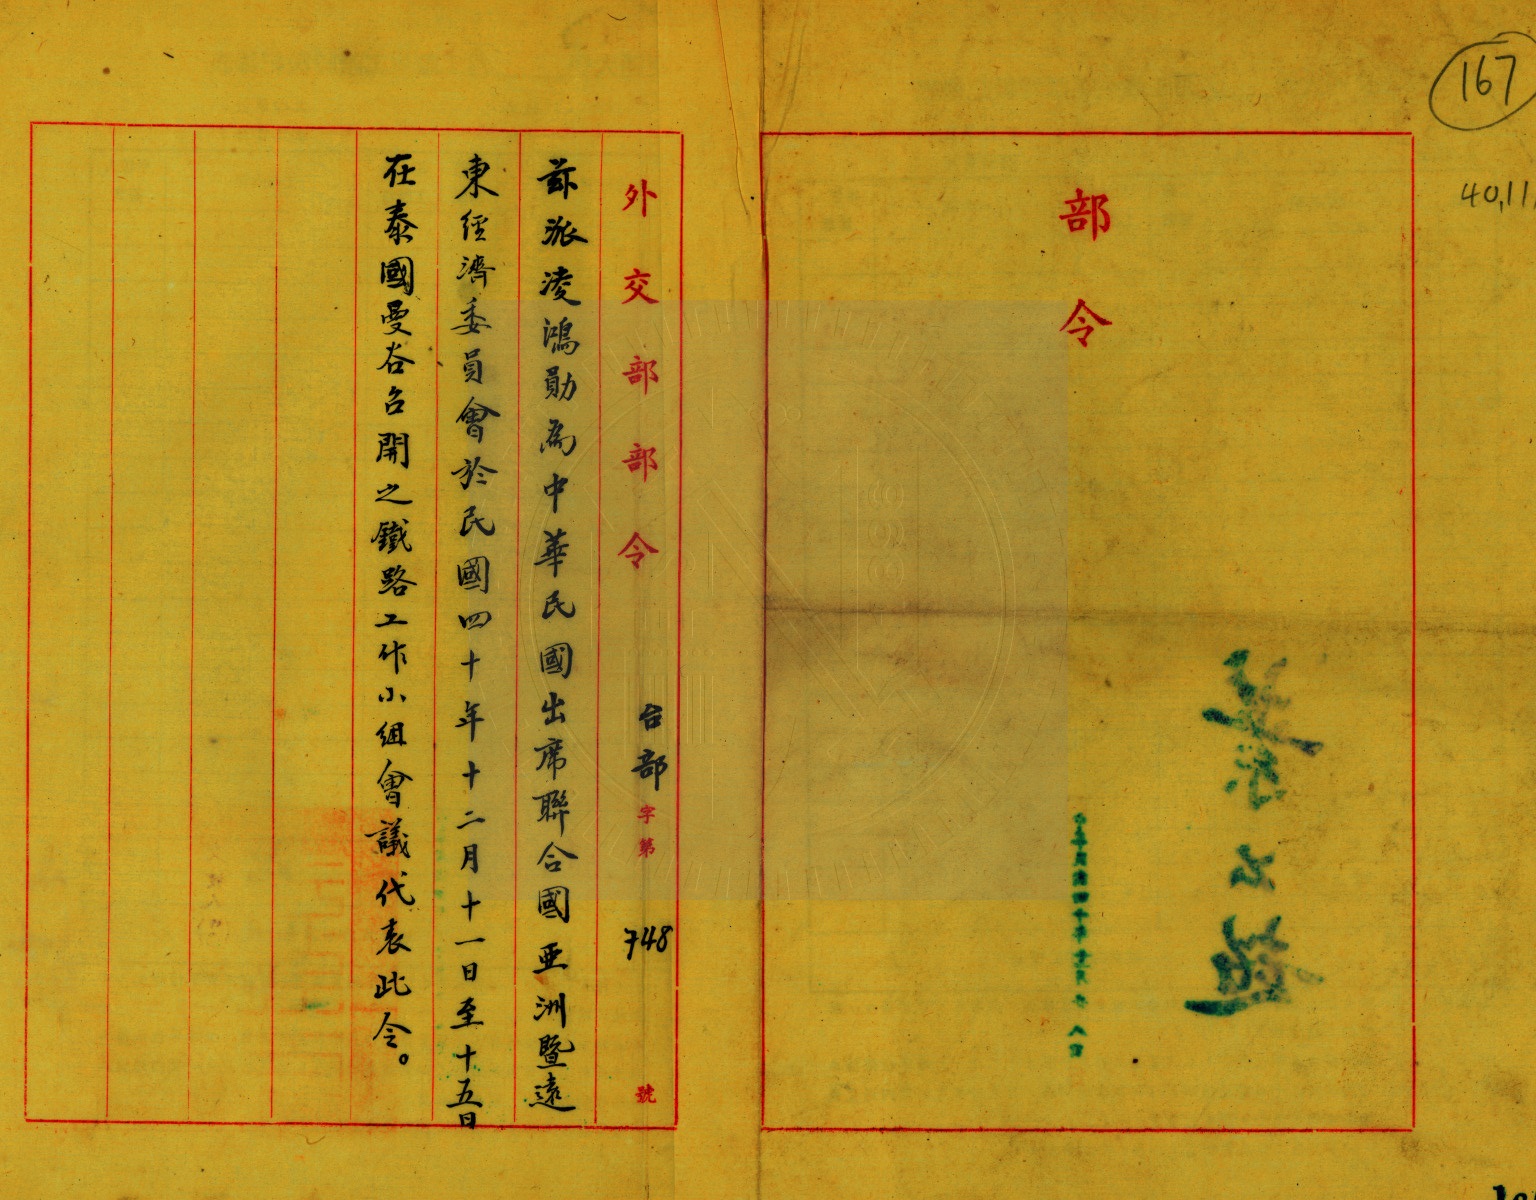 167
40,11,
部令
外交部部令 台部字第748號
茲派凌鴻勛為中華民國出席聯合國亞洲暨遠
東經濟委員會於民國四十年十二月十一日至十五日
在泰國曼谷召開之鐵路工作小組會議代表此令。